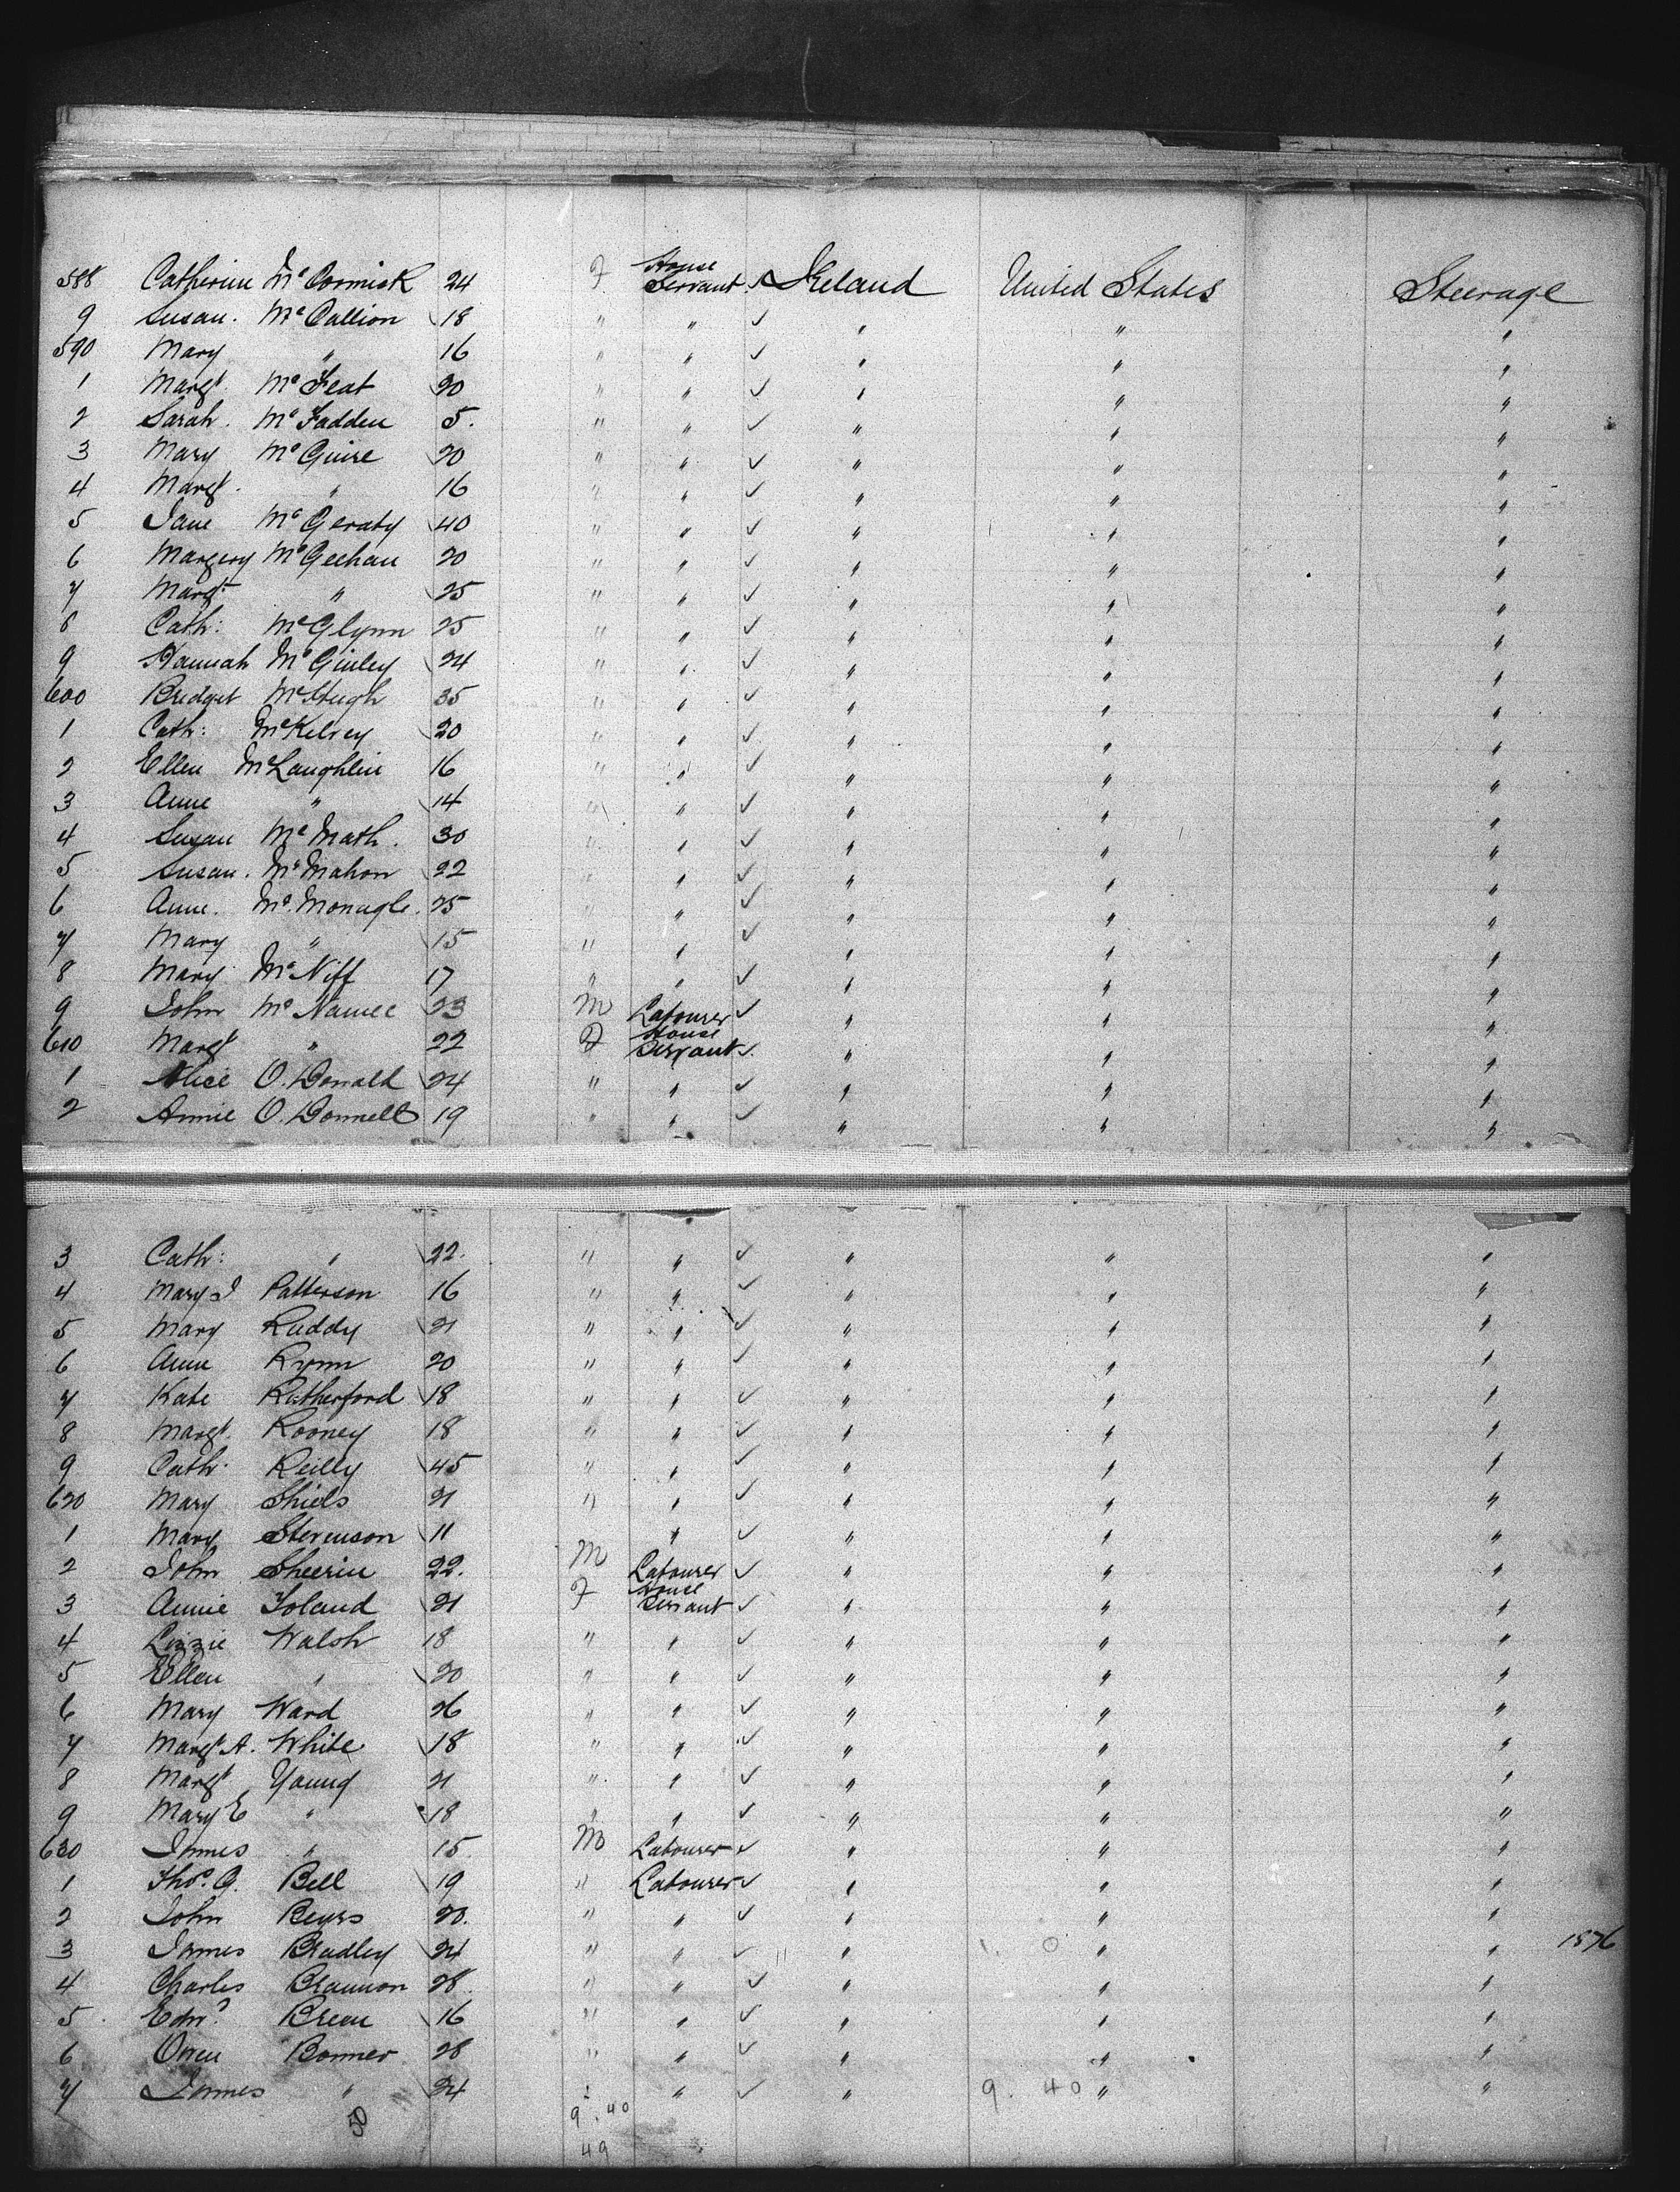 588 Catherine McCormick 24 F House Servant ✓ Ireland United States Steerage
9 Susan. McCallion 18 " " ✓ " " "
590 Mary " 16 " " ✓ " " "
1 Margt. McFeat 20 " " ✓ " " "
2 Sarah. McFadden 5. " " ✓ " " "
3 Mary McGuire 20 " " ✓ " " "
4 Margt. " 16 " " ✓ " " "
5 Jane McGeraty 40 " " ✓ " " "
6 Margery McGeehan 20 " " ✓ " " "
7 Margt. " 25 " " ✓ " " "
8 Cath: McGlynn 25 " " ✓ " " "
9 Hannah McGinley 24 " " ✓ " " "
600 Bridget McHugh 35 " " ✓ " " "
1 Cath: McKelvey 20 " " ✓ " " "
2 Ellen McLaughlin 16 " " ✓ " " "
3 Anne " 14 " " ✓ " " "
4 Susan McMath. 30 " " ✓ " " "
5 Susan. McMahon 22 " " ✓ " " "
6 Anne. McMonagle. 25 " " ✓ " " "
7 Mary " 15 " " ✓ " " "
8 Mary McNiff 17 " " ✓ " " "
9 John McNamee 23 M Labourer ✓ " " "
610 Margt " 22 F House Servant ✓ " " "
1 Alice O.Donald 24 " " ✓ " " "
2 Annie O.Donnell 19 " " ✓ " " "
3 Cath: " 22. " " ✓ " " "
4 Mary J Patterson 16 " " ✓ " " "
5 Mary Ruddy 21 " " ✓ " " "
6 Anne Rynn 20 " " ✓ " " "
7 Kate Rutherford 18 " " ✓ " " "
8 Margt. Rooney 18 " " ✓ " " "
9 Cath: Reilly 45 " " ✓ " " "
620 Mary Shiels 21 " " ✓ " " "
1 Mary Stevenson 11 " ✓ " " "
2 John Sheerin 22. M Labourer ✓ " " "
3 Annie Toland 21 F House Servant ✓ " " "
4 Lizzie Walsh 18 " " ✓ " " "
5 Ellen " 20 " " ✓ " " "
6 Mary Ward 26 " " ✓ " " "
7 Margt A. White 18 " " ✓ " " "
8 Margt Young 21 " " ✓ " " "
9 Mary E " 18 " " ✓ " " "
630 James " 15 M Labourer ✓ " " "
1 Thos. G. Bell 19 " Labourer ✓ " " "
2 John Beyrs 20. " " ✓ " " "
3 James Bradley 24 " " ✓ " " " 1876
4 Charles Brannon 28. " " ✓ " " "
5 Edwd Breen 16 " " ✓ " " "
6 Owen Bonner 28 " " ✓ " " "
7 James " 24 " " ✓ " 9. 40 " "
50 9.40
49